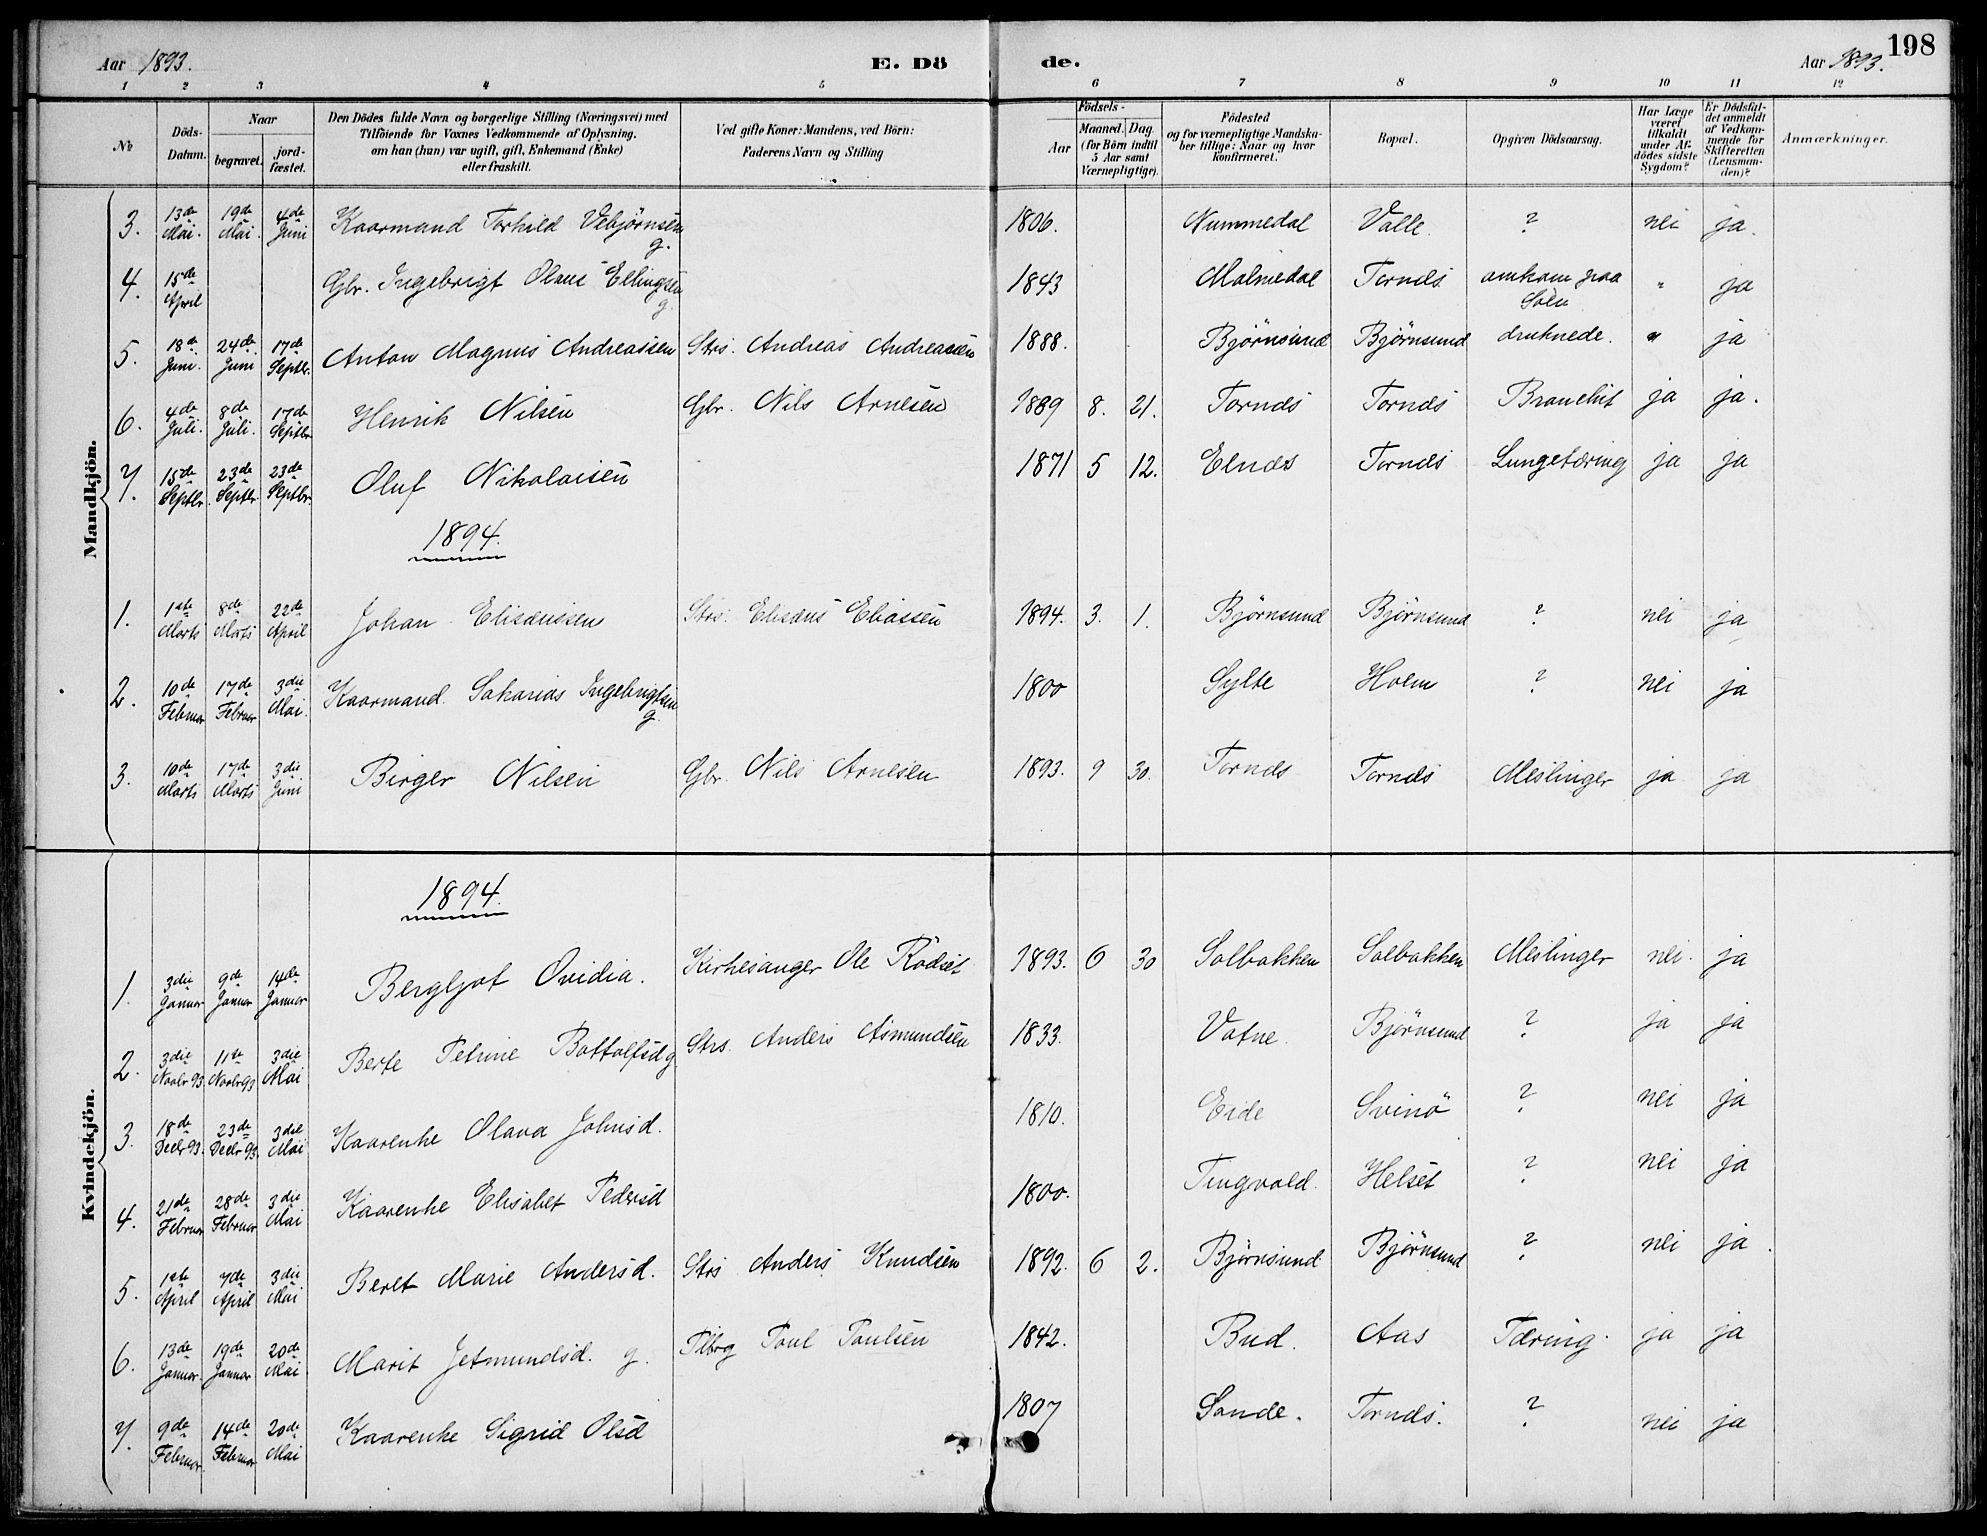 198
Aar 1893. E. Dö de. Aar 1893.
1 2 3 4 5 6 7 8 9 10 11 12
No
Döds-Datum.
Naar
begravet.
jord-fæstet.
Den Dödes fulde Navn og borgerlige Stilling (Næringsvei) med
Tilföiende for Voxnes Vedkommende af Oplysning,
om han (hun) var ugift, gift, Enkemand (Enke)
eller fraskilt.
Ved gifte Koner: Mandens, ved Börn:
Faderens Navn og Stilling
Födsels-
Aar
Maaned. Dag
(for Börn indtil
5 Aar samt
Værnepligtige).
Födested
og for værnepligtige Mandska-
ber tillige: Naar og hvor
konfirmeret.
Bopæl.
Opgiven Dödsaarsag.
Har Læge
været
tilkaldt
under Af-
dödes sidste
Sygdom?
Er Dödsfal-
det anmeldt
af Vedkom-
mende for
Skifteretten
(Lensman-
den)?
Anmærkninger.
Mandkjön.
3. 13de Mai. 19de Mai. 4de Juni Kaarmand Torkild Vebjørnsen g. 1806. Nummedal Valle. ? nei ja.
4. 15de April Gbr. Ingebrigt Olaus Ellingsen g. 1843 Malmedal Tornæs omkom paa Søen " ja
5. 18de Juni. 24de Juni 17de Septbr. Anton Magnus Andreassen Strs. Andreas Andreassen 1888. Bjørnsund Bjørnsund druknede. " ja
6. 4de Juli. 8de Juli. 17de Septbr. Henrik Nilsen Gbr. Nils Arnesen 1889 8. 21. Tornæs Tornæs Bronchit ja ja.
7. 15de Septbr. 23de Septbr. 23de Septbr. Oluf Nikolaisen 1871 5 12. Elnæs Tornæs Lungetæring ja ja
1894.
1. 1ste Marts 8de Marts 22de April Johan Elisæussen Strs. Elisæus Eliassen 1894. 3. 1. Bjørnsund Bjørnsund ? nei ja
2. 10de Februar 17de Februar 3die Mai. Kaarmand Sakarias Ingebrigtsen g. 1800 Sylte Holm ? nei ja
3. 10de Marts 17de Marts 3die Juni Birger Nilsen Gbr. Nils Arnesen 1893. 9 30. Tornæs Tornæs Meslinger ja ja
Kvindekjön.
1894.
1. 3die Januar 9de Januar 14de Januar Bergljot Ovidia. Kirkesanger Ole Rødset 1893. 6 30 Solbakken Solbakken Meslinger nei. ja
2. 3die Novbr 93. 11te Novbr 93 3die Mai Berte Petrine Bottolfsd g. Strs. Anders Asmundsen 1833. Vatne. Bjørnsund ? ja ja
3. 18de Decbr 93. 23de Decbr 93. 3die Mai Kaarenke Olava Johnsd. 1810. Eide Svinö ? nei ja
4. 21de Februar 28de Februar 3die Mai Kaarenke Elisabet Pedersd 1800. Tingvold. Helset ? nei ja
5. 1ste April 7de April 3die Mai Beret Marie Andersd. Strs Anders Knudsen 1892. 6 2. Bjørnsund Bjørnsund ? nei ja.
6. 13de Januar. 19de Januar 20de Mai. Marit Jetmundsd. g. Paul Paulsen 1842. Bud. Aas Tæring. ja ja
7. 9de Februar. 14de Februar 20de Mai Kaarenke Sigrid Olsd 1807 Sande. Tornæs. ? nei ja